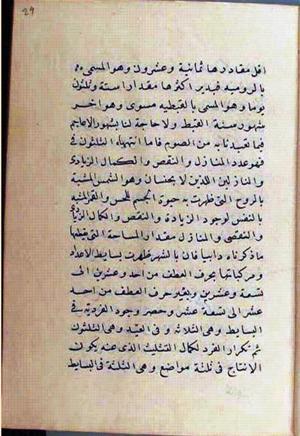 29
اقل مقادرها ثمانية وعشرون وهو المسمى
بالروميه فبدير اكثرها مقدار استة وثلثون
يوما وهو المسمى بالقبطيه مسرى وهو اخر
شهور سنة القبط ولا حاجة لنا بشهور الاعاجم
فيما تقيدنا به من الصوم فاما انتهاء الثلثون في
فهو عدد المنازل والنقص الكمال الزيادى
والمنازلين اللذين لا يحسنان وهو الشمس المشبهة
بالروح التي ظهرت به حيوة الجسم للحس والقمر المشبه
بالنفس لوجود الزيادة والنقص والكمال الزيادى
والنقصى والمنازل مقدار المساحة التي يقطعها
ما ذكرناه دايبا فان بالشهر ظهرت بسايط الاعداد
ومركباتها بحرف العطف من احد وعشرين الى
تسعة وعشرين وبغير حرف العطف من احد
عشر الى تسعة عشر وحصر وجود الفردية في
البسايط وهى الثلاثة و في العقد وهى الثلثون
ثم تكرار الفرد لكمال التثليث الذى عنه يكون
الانتاج في ثلثة مواضع وهى الثلثة في البسايط